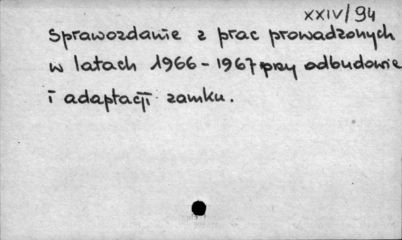 XXIV/94
Sprawozdanie z prac prowadzonych
w latach 1966-1967 przy odbudowie
i adaptacji zamku.